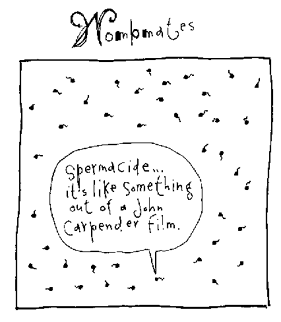 Wombmates
Spermacide...
it's like something
out of a John
Carpender film.